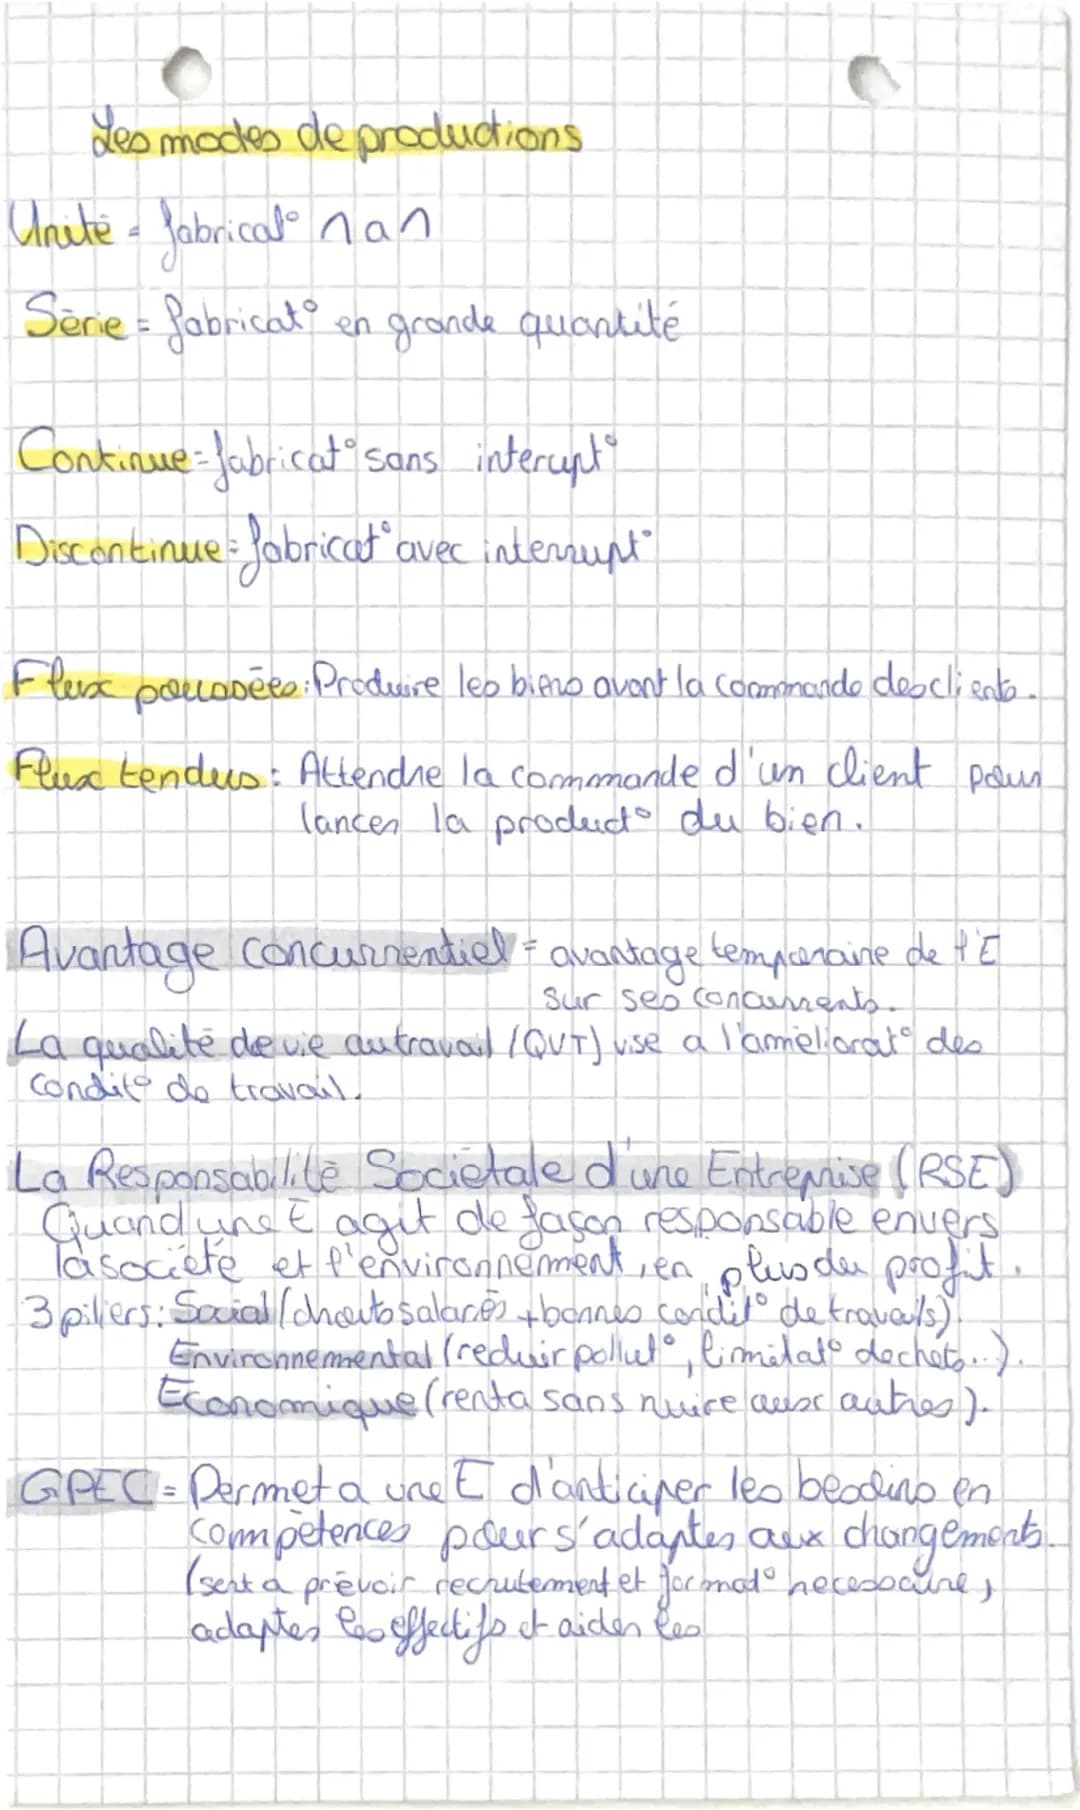 Les modes de productions
Unité = fabricat° 1 a 1
Série = fabricat° en grande quantité
Continue = fabricat° sans interupt°
Discontinue = fabricat° avec interrupt°
Flux poussées : Produire les biens avant la commande des clients.
Flux tendus : Attendre la commande d'un client pour
lancer la product° du bien.
Avantage concurrentiel = avantage temporaire de l'E
sur ses concurrents.
La qualité de vie au travail (QVT) vise a l'améliorat° des
condit° de travail.
La Responsabilité Sociétale d'une Entreprise (RSE)
Quand une E agit de façon responsable envers
la société et l'environnement, en plus du profit.
3 piliers : Social (droits salariés + bonnes condit° de travails).
Environnemental (reduir pollut°, limitat° dechets...).
Economique (renta sans nuire aux autres).
GPEC = Permet a une E d'anticiper les besoins en
compétences pour s'adapter aux changements.
(sert a prévoir recrutement et format° necessaire,
adapter les effectifs et aider les